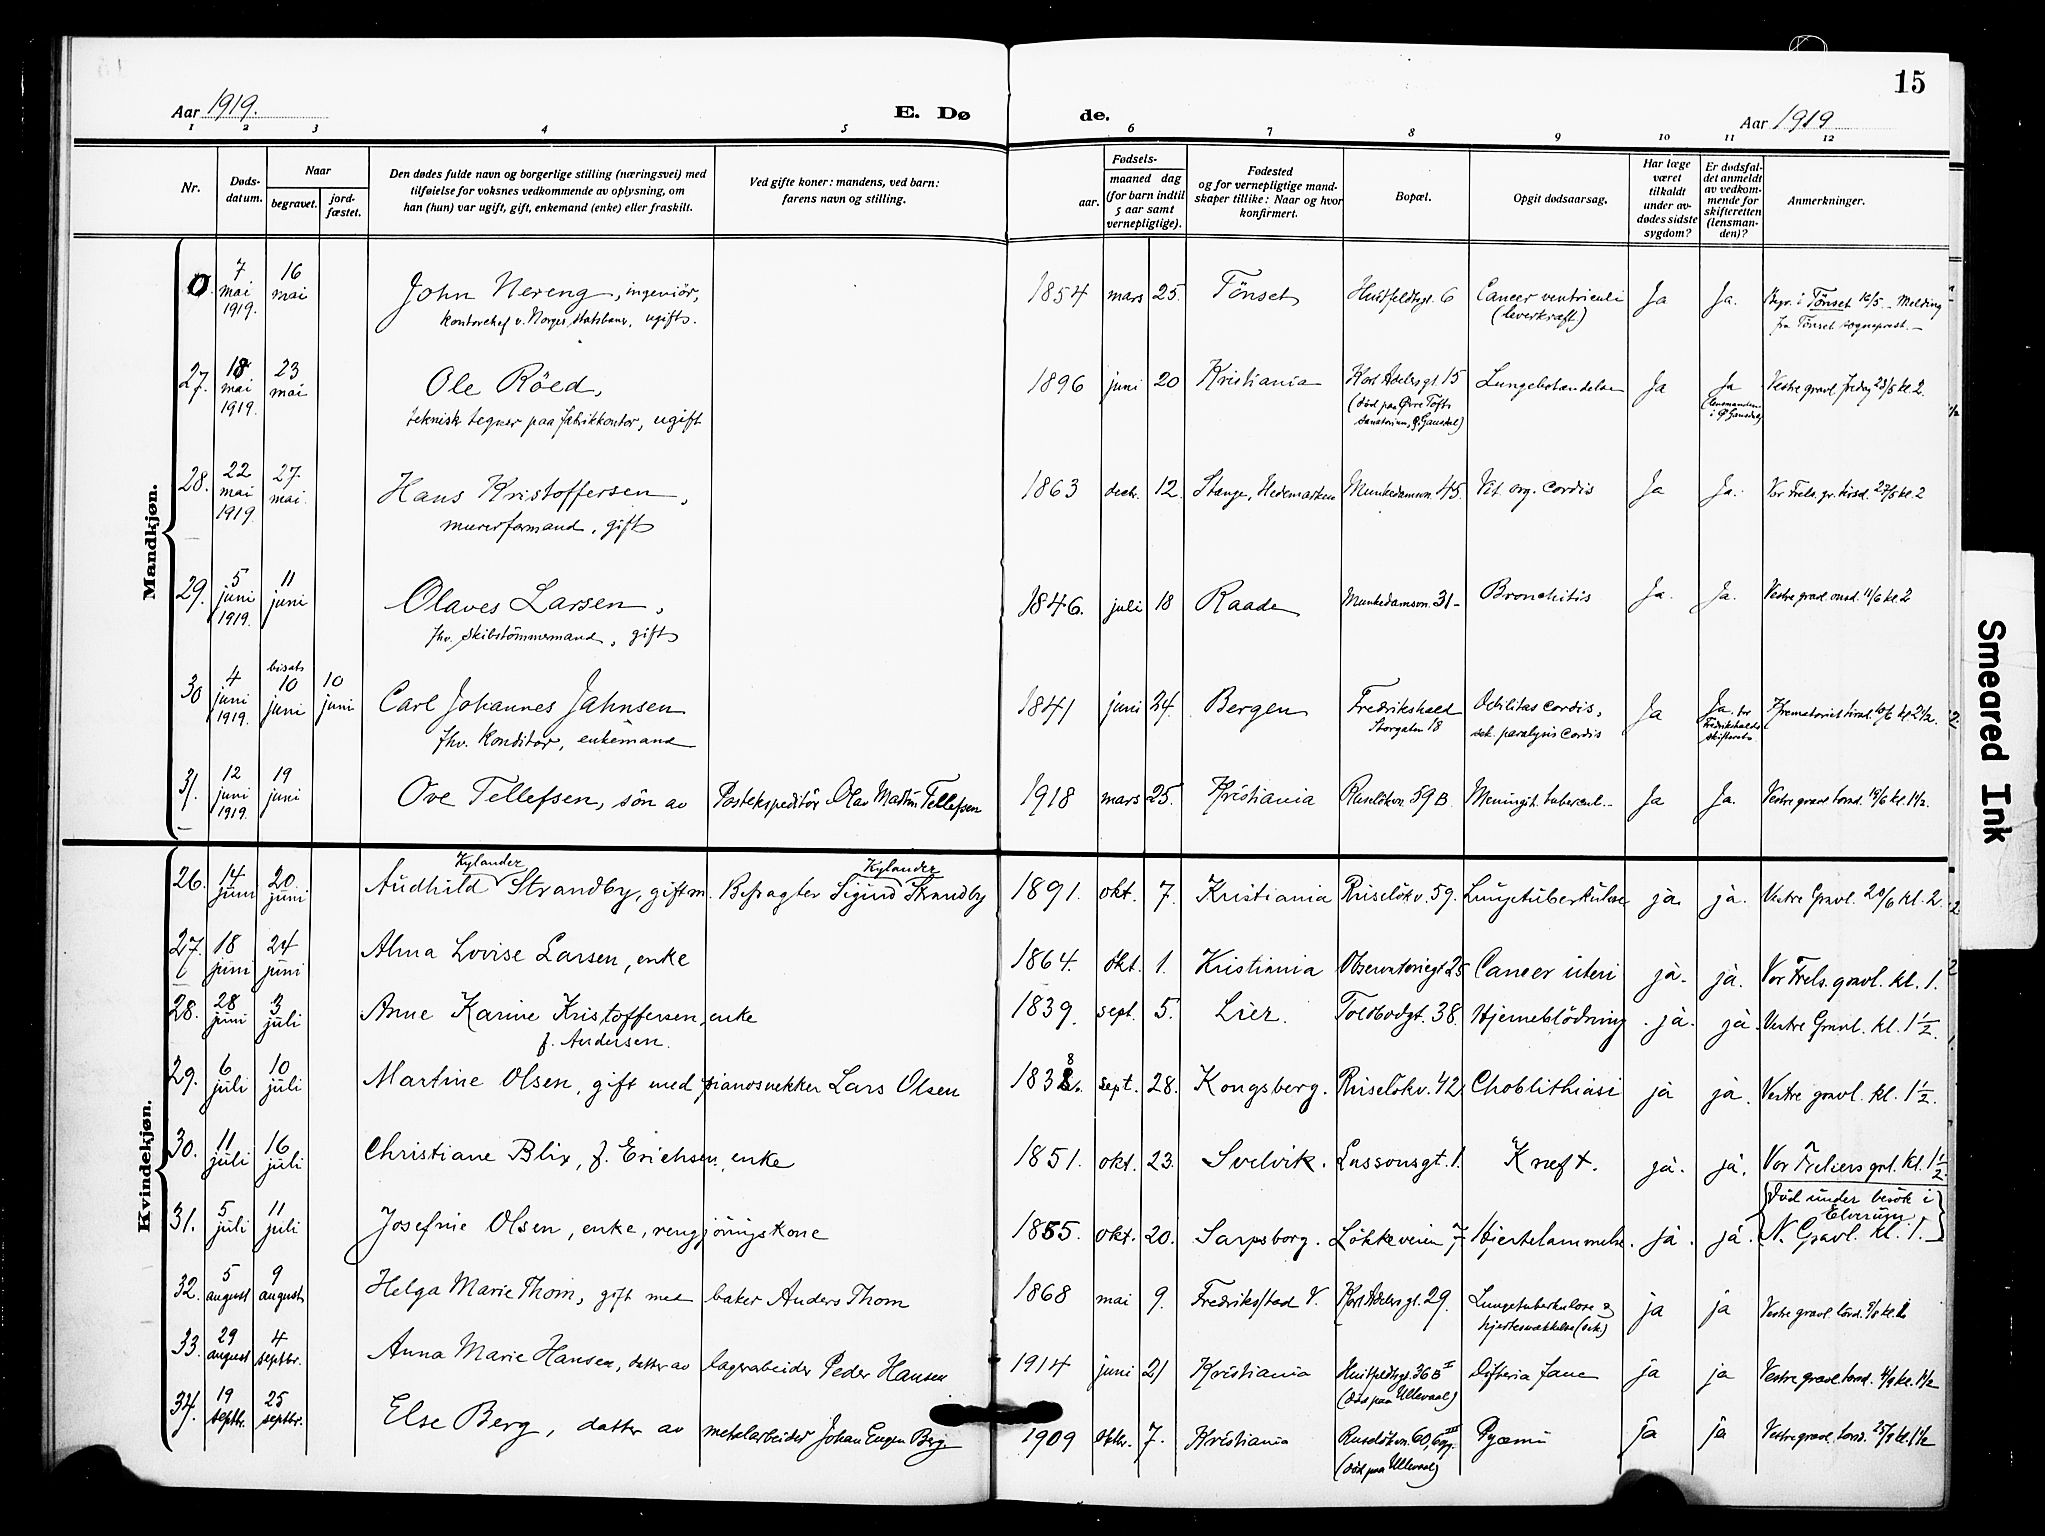 15
Aar 1919.
E. Dø
de.
Aar 1919
1 2 3 4 5 6 7 8 9 10 11 12
Nr.
Døds-
datum.
Naar
begravet.
jord-
fæstet.
Den dødes fulde navn og borgerlige stilling (næringsvei) med
tilføielse for voksnes vedkommende av oplysning, om
han (hun) var ugift, gift, enkemand (enke) eller fraskilt.
Ved gifte koner: mandens, ved barn:
farens navn og stilling.
Fødsels-
aar. maaned dag
(for barn indtil
5 aar samt
vernepligtige).
Fødested
og for vernepligtige mand-
skaper tillike: Naar og hvor
konfirmert.
Bopæl.
Opgit dødsaarsag.
Har læge
været
tilkaldt
under av-
dødes sidste
sygdom?
Er dødsfal-
det anmeldt
av vedkom-
mende for
skifteretten
(lensman-
den)?
Anmerkninger.
Mandkjøn.
0. 7 mai 1919. 16 mai John Nereng, ingeniör, 1854 mars 25. Tönset Huitfeldtsgt. 6 Cancer ventriculi Ja Ja. Begr. i Tönset 16/5 - Melding
kontorchef v. Norges statsbaner, ugift. (leverkræft) fra Tönset sogneprest. -
27. 18 mai 1919. 23 mai Ole Röed, 1896 juni 20 Kristiania Karl Adelersgt. 15 Lungebetændelse Ja Ja Vestre gravl. fredag 23/5 kl. 2.
teknisk tegner paa fabrikkontor, ugift (död paa Øvre Tofte (lensmanden
sanatorium, Ø. Gausdal) i Ø. Gausdal)
28. 22 mai 1919. 27. mai. Hans Kristoffersen, 1863 decb. 12. Stange, Hedemarken Munkedamsvn. 45. Vit. org. cordis Ja Ja. Vor Frels. gr. tirsd. 27/5 kl. 2
murerformand, gift
29. 5 juni 1919. 11 juni Olaves Larsen, 1846. juli 18 Raade Munkedamsvn. 31- Bronchitis Ja. Ja. Vestre gravl. onsd. 11/6 kl. 2
fhv. skibstömmermand, gift
30 4 juni 1919. bisat 10 juni 10 juni Carl Johannes Jahnsen 1841 juni 24. Bergen Fredrikshald Debilitas cordis, Ja Ja. for Krematoriet tirsd. 10/6 kl. 2 1/2.
fhv. konditor, enkemand Storgaten 18 sek. paralysis cordis Fredrikshalds
skifteret
31. 12 juni 1919. 19 juni Ove Tellefsen, sön av Postekspeditör Olav Martin Tellefsen 1918 mars 25. Kristiania Ruselökvn. 59 B. Meningit. tubercul. - Ja Ja. Vestre gravl. torsd. 19/6 kl. 1 1/2.
Kvindekjøn.
Kylander Kylander
26. 14 juni 20. juni Audhild Strandby, gift m. Befragter Sigurd Strandby 1891. okt. 7. Kristiania Ruselökv. 59. Lungetuberkulose ja ja. Vestre Gravl. 20/6 kl. 2.
27. 18 juni 24 juni Alma Lovise Larsen, enke 1864. okt. 1. Kristiania Observatoriegt 25 Cancer uteri ja. ja. Vor Frels. gravl. kl. 1.
28. 28 juni 3 juli Anne Karine Kristoffersen, enke 1839. sept. 5. Lier. Toldbodgt. 38. Hjerneblödning. ja. ja Vestre Gravl. kl. 1 1/2.
f. Andersen.
29. 6 juli 10 juli Martine Olsen, gift med pianosnekker Lars Olsen 1838. sept. 28. Kongsberg. Ruselökv. 42. Choblithiasi ja ja. Vestre gravl. kl. 1 1/2.
30. 11 juli 16 juli Christiane Blix, f. Erichsen, enke 1851. okt. 23. Svelvik. Lassonsgt. 1. Kræft. ja. ja. Vor Frelsers grl. kl. 1 1/2.
31. 5 juli 11 juli Josefine Olsen, enke, rengjöringskone 1855. okt. 20. Sarpsborg. Lökkeveien 7 Hjertelammelse. ja. ja. {Död under besök i
Elverum.}
N. Gravl. kl. 1.
32. 5 august 9 august Helga Marie Thom, gift med baker Anders Thom 1868 mai 9. Fredrikstad V. Karl Adelersgt. 29. Lungetuberkulose & ja ja Vestre gravl. lörd. 9/8 kl. 1
hjertesvækkelse (sek.)
33. 29 august 4 septbr. Anna Marie Hansen, datter av lagerarbeider Peder Hansen 1914 juni 21 Kristiania Huitfeldtsgt. 36 B II Difteria ja ja Vestre gravl torsd. 4/9 kl. 1 1/2
(död paa Ullevaal)
34. 19 septbr. 25 septbr. Else Berg, datter av metalarbeider Johan Eugen Berg 1909 oktbr. 7. Kristiania Ruselökvn. 60, III Pyæmi ja ja Vestre gravl. torsd. 25/9 kl. 1 1/2
(död paa Ullevaal)
Smeared Ink